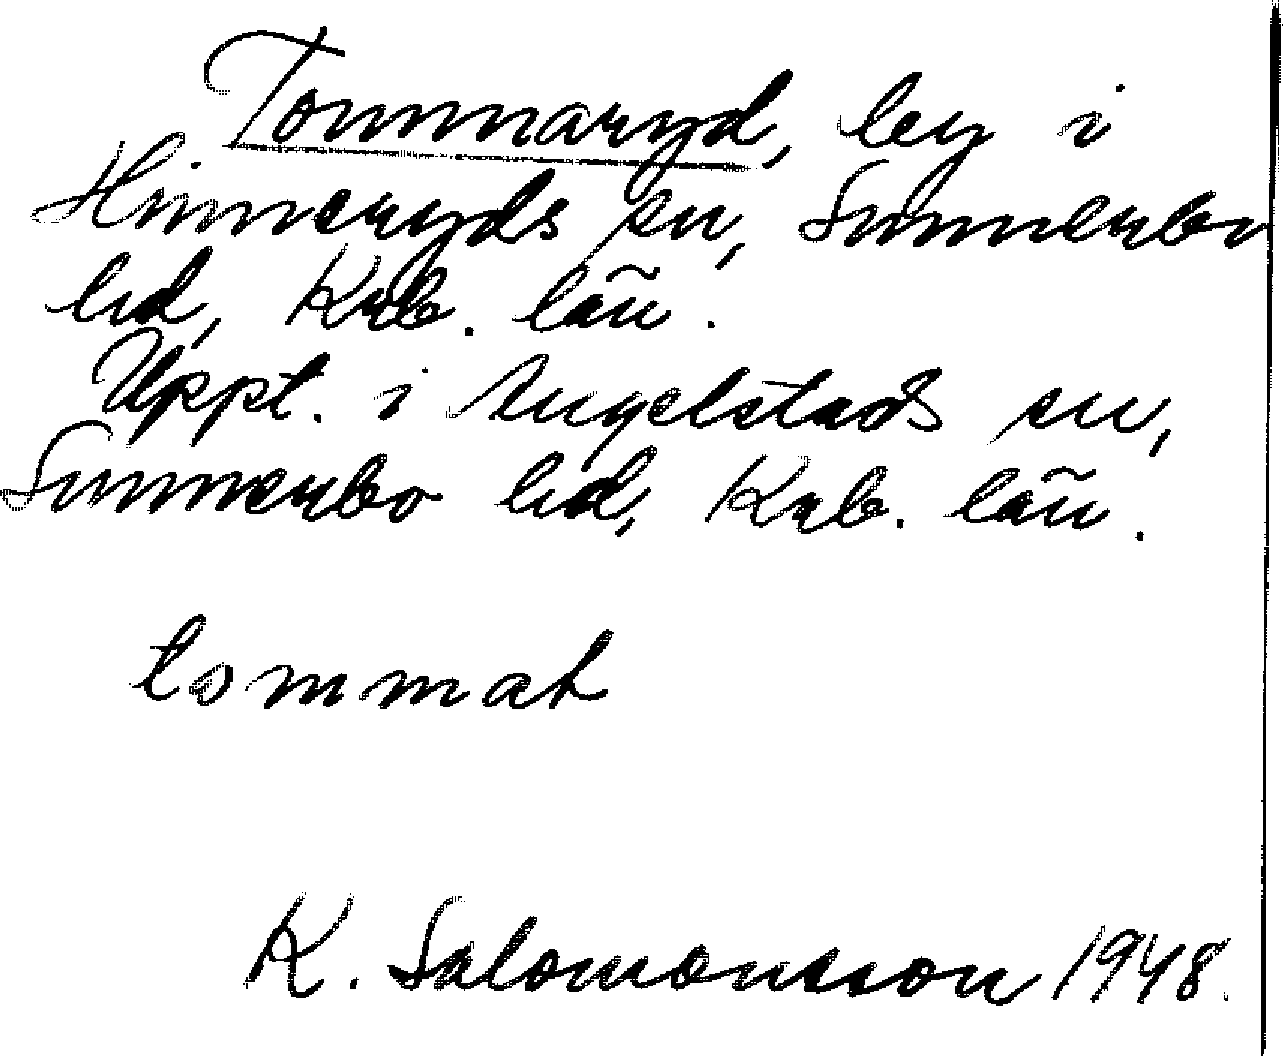 Tommaryd, by i
Hinneryds sn, Sunnerbo
hd, Krb. län.
Uppt. i Angelstads sn,
Sunnerbo hd, Krb. län.
tommat
K. Salomonsson 1948.